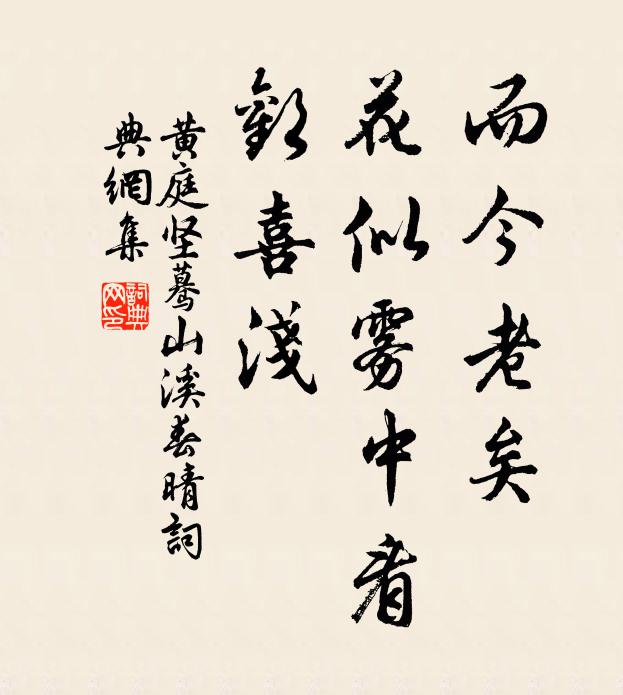 而今老矣
花似雾中看
歡喜淺
黄庭坚蓦山溪春晴詞
典網集
詞典网印